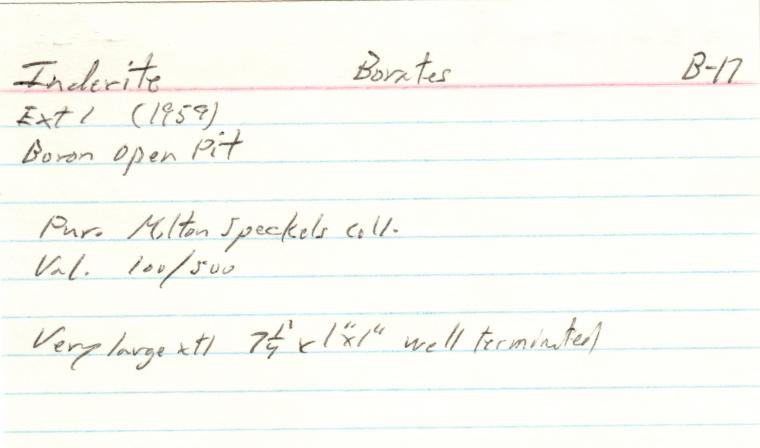 Inderite Borates B-17
Ext 1 (1959)
Boron open Pit
Pur. Milton Speckels coll.
Val. 100/500
Very large xtl 7 1/4" x 1" x 1" well terminated